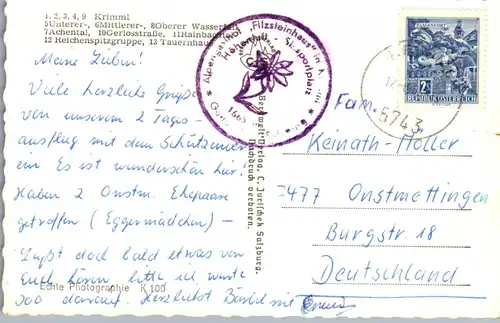 1, 2, 3, 4, 9 Krimml
5Unterer-, 6Mittlerer-, 8Oberer Wasserfall
7Achental, 10Gerlosstraße, 11Rainbach
12 Reichenspitzgruppe, 13 Tauernhaus
Meine Lieben!
Viele herzliche Grüße
von unserem 2 Tages-
ausflug mit dem Schützenver
ein. Es ist wunderschön hier.
Haben 2 Onstm. Ehepaare
getroffen (Eggermädchen) -
Laßt doch bald etwas von
Euch hören bitte ich warte
soo darauf. Herzlichst Bärbel mit
Echte Photographie K 100
Bergwelt-Verlag, C. Jurischek Salzburg.
Nachdruck verboten.
Alpengasthof „Filzsteinhaus" in Krimml
Höhenluft - Skisportplatz
REPUBLIK ÖSTERREICH
5743
Fam.
Keinath-Höller
7477 Onstmettingen
Burgstr 18
Deutschland